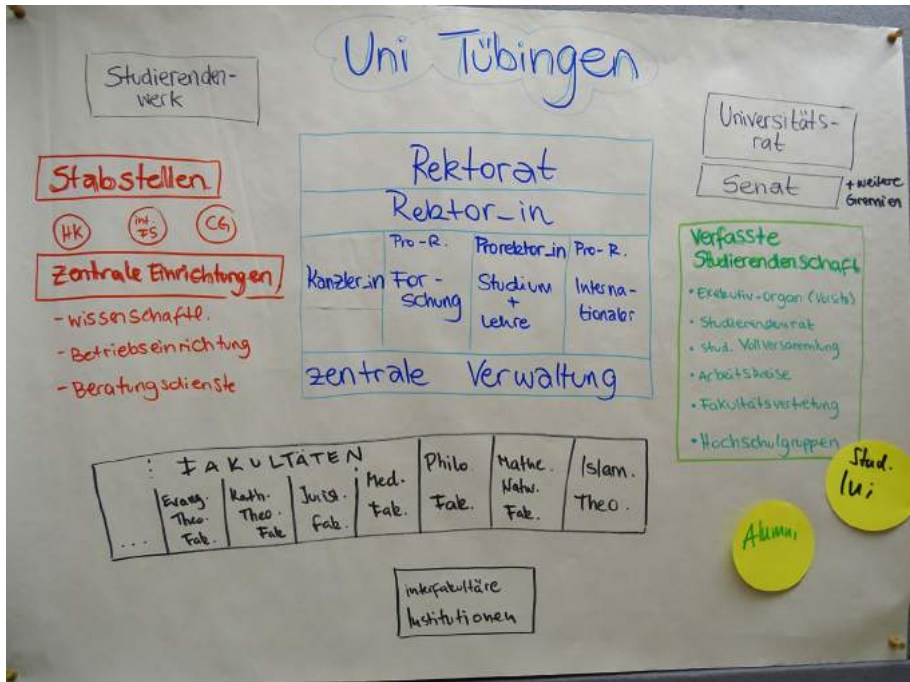 Uni Tübingen
Studierenden-
werk
Stabstellen
HK
int.
FS
CG
Zentrale Einrichtungen
- wissenschaftl.
- Betriebseinrichtung
- Beratungsdienste
Rektorat
Rektor_in
Kanzler_in
Pro-R.
For-
schung
Prorektor_in
Studium
+
Lehre
Pro-R.
Interna-
tionales
zentrale Verwaltung
Universitäts-
rat
Senat
+ weitere
Gremien
Verfasste
Studierendenschaft
• Exekutiv-organ (Vorsitz)
• Studierendenrat
• stud. Vollversammlung
• Arbeitskreise
• Fakultätsvertretung
• Hochschulgruppen
Stud.
Alumni
FAKULTÄTEN
...
Evang.
Theo.
Fak.
Kath.
Theo.
Fak
Jurist.
Fak.
Med.
Fak.
Philo.
Fak.
Mathe.
Natw.
Fak.
Islam.
Theo.
interfakultäre
Institutionen